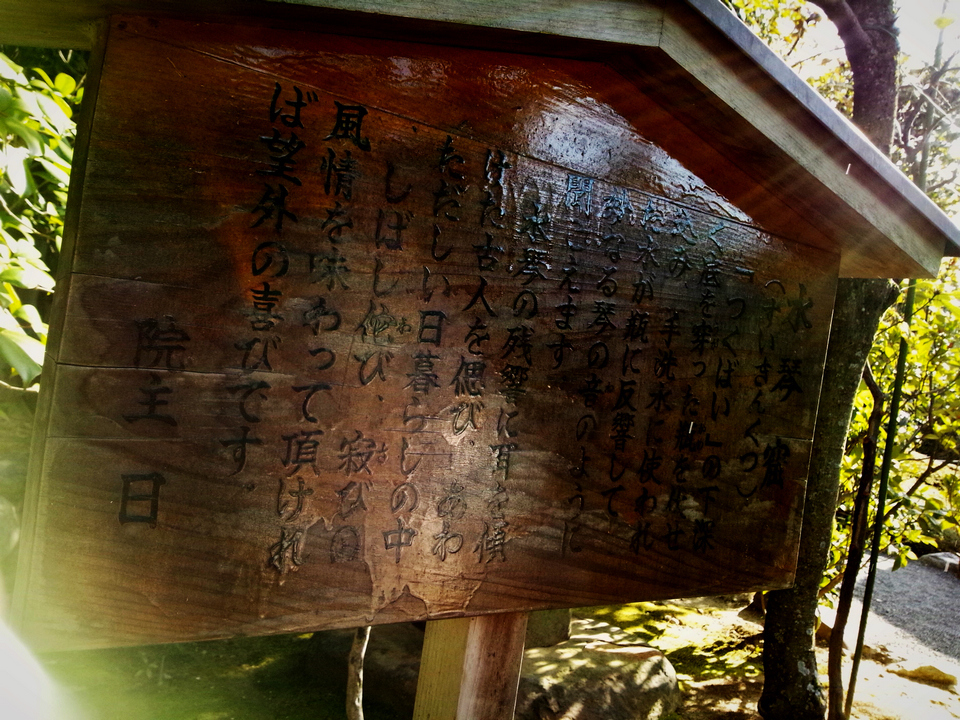 水琴窟
(すいきんくつ)
「つくばい」の下深
く岩を穿った瓶を伏せ
込み、手洗水に使われ
た水が瓶に反響して
妙なる琴の音のように
聞こえます
水琴の残響に耳を傾
けた古人を偲び、あわ
ただしい日暮らしの中
しばし侘び、寂びの
風情を味わって頂けれ
ば望外の喜びです。
院主 日